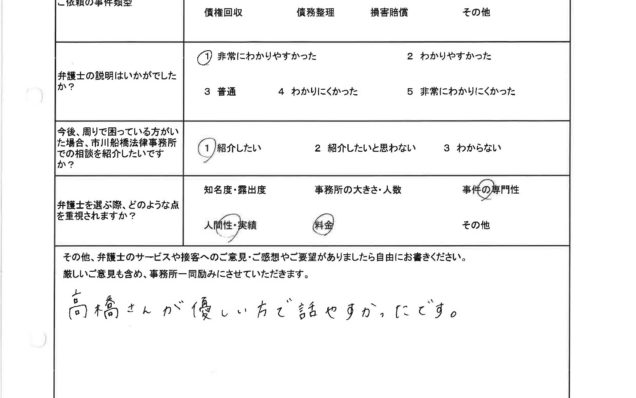 ご依頼の事件類型
債権回収 債務整理 損害賠償 その他
弁護士の説明はいかがでしたか?
1 非常にわかりやすかった 2 わかりやすかった
3 普通 4 わかりにくかった 5 非常にわかりにくかった
今後、周りで困っている方がいた場合、市川船橋法律事務所での相談を紹介したいですか?
1 紹介したい 2 紹介したいと思わない 3 わからない
弁護士を選ぶ際、どのような点を重視されますか?
知名度・露出度 事務所の大きさ・人数 事件の専門性
人間性・実績 料金 その他
その他、弁護士のサービスや接客へのご意見・ご感想やご要望がありましたら自由にお書きください。
厳しいご意見も含め、事務所一同励みにさせていただきます。
高橋さんが優しい方で話やすかったです。